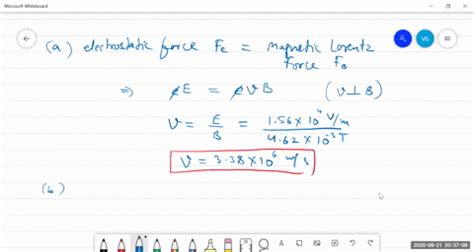 Microsoft Whiteboard
(a) electrostatic force FE = magnetic Lorentz
force FB
⇒ eE = eVB (V⊥B)
V = E/B = 1.56 × 10^4 V/m / 4.62 × 10^-3 T
V = 3.38 × 10^6 m/s
(b)
VG
2020-09-21 20:37:09